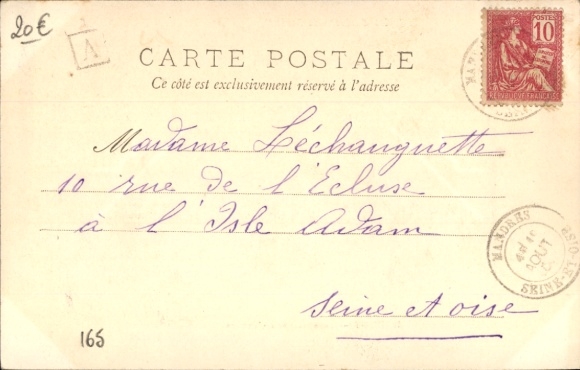 20€
A
CARTE POSTALE
Ce côté est exclusivement réservé à l'adresse
POSTES
10
REPUBLIQUE FRANÇAISE
Madame Léchauguette
10 rue de l'Ecluse
à l'Isle Adam
Seine et oise
MANDRES
AOUT
SEINE-ET-OISE
165